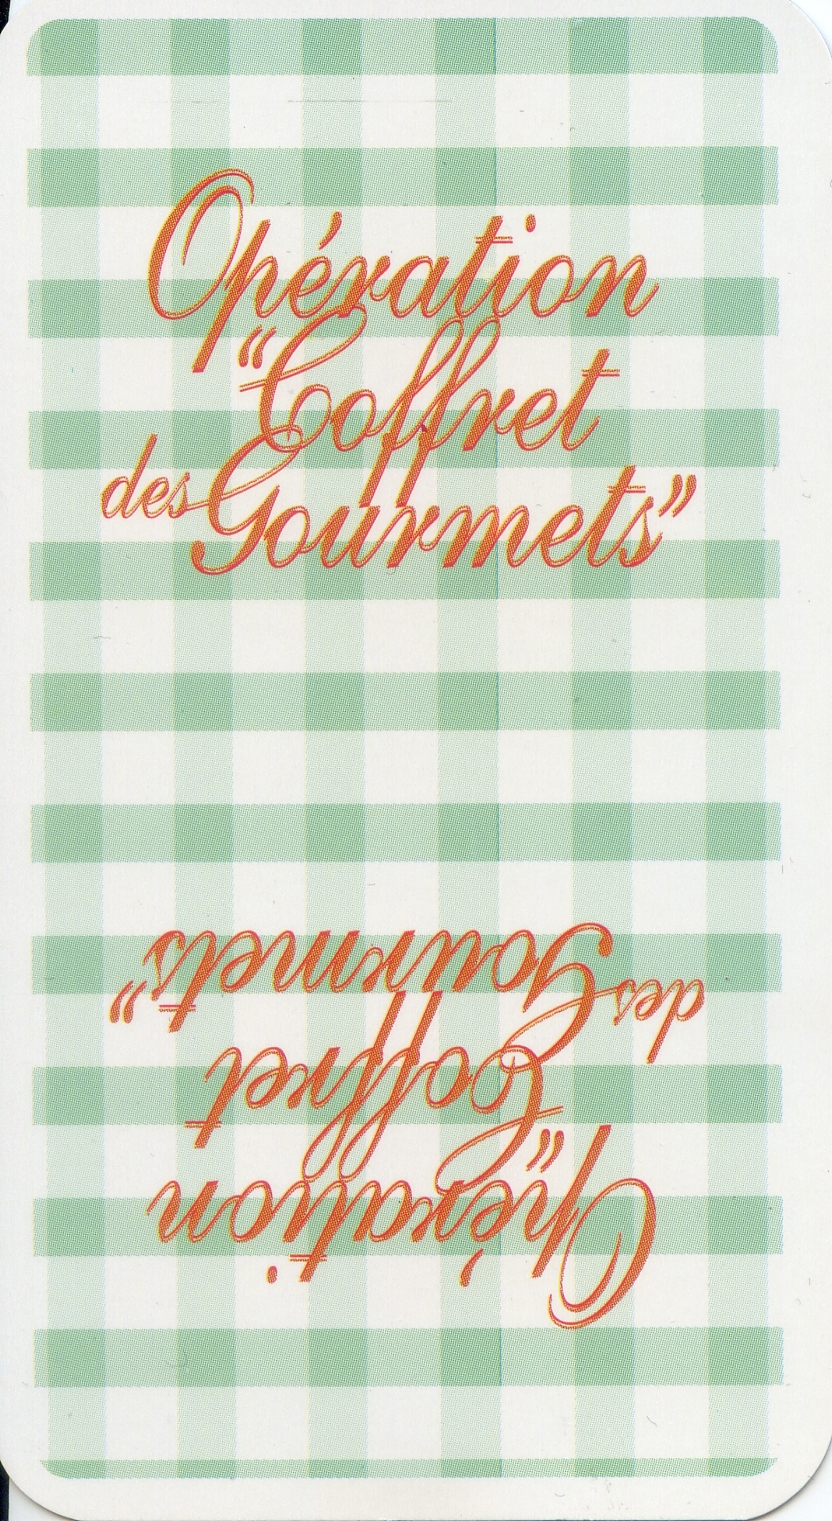 Opération
“Coffret
des Gourmets”
Opération
“Coffret
des Gourmets”